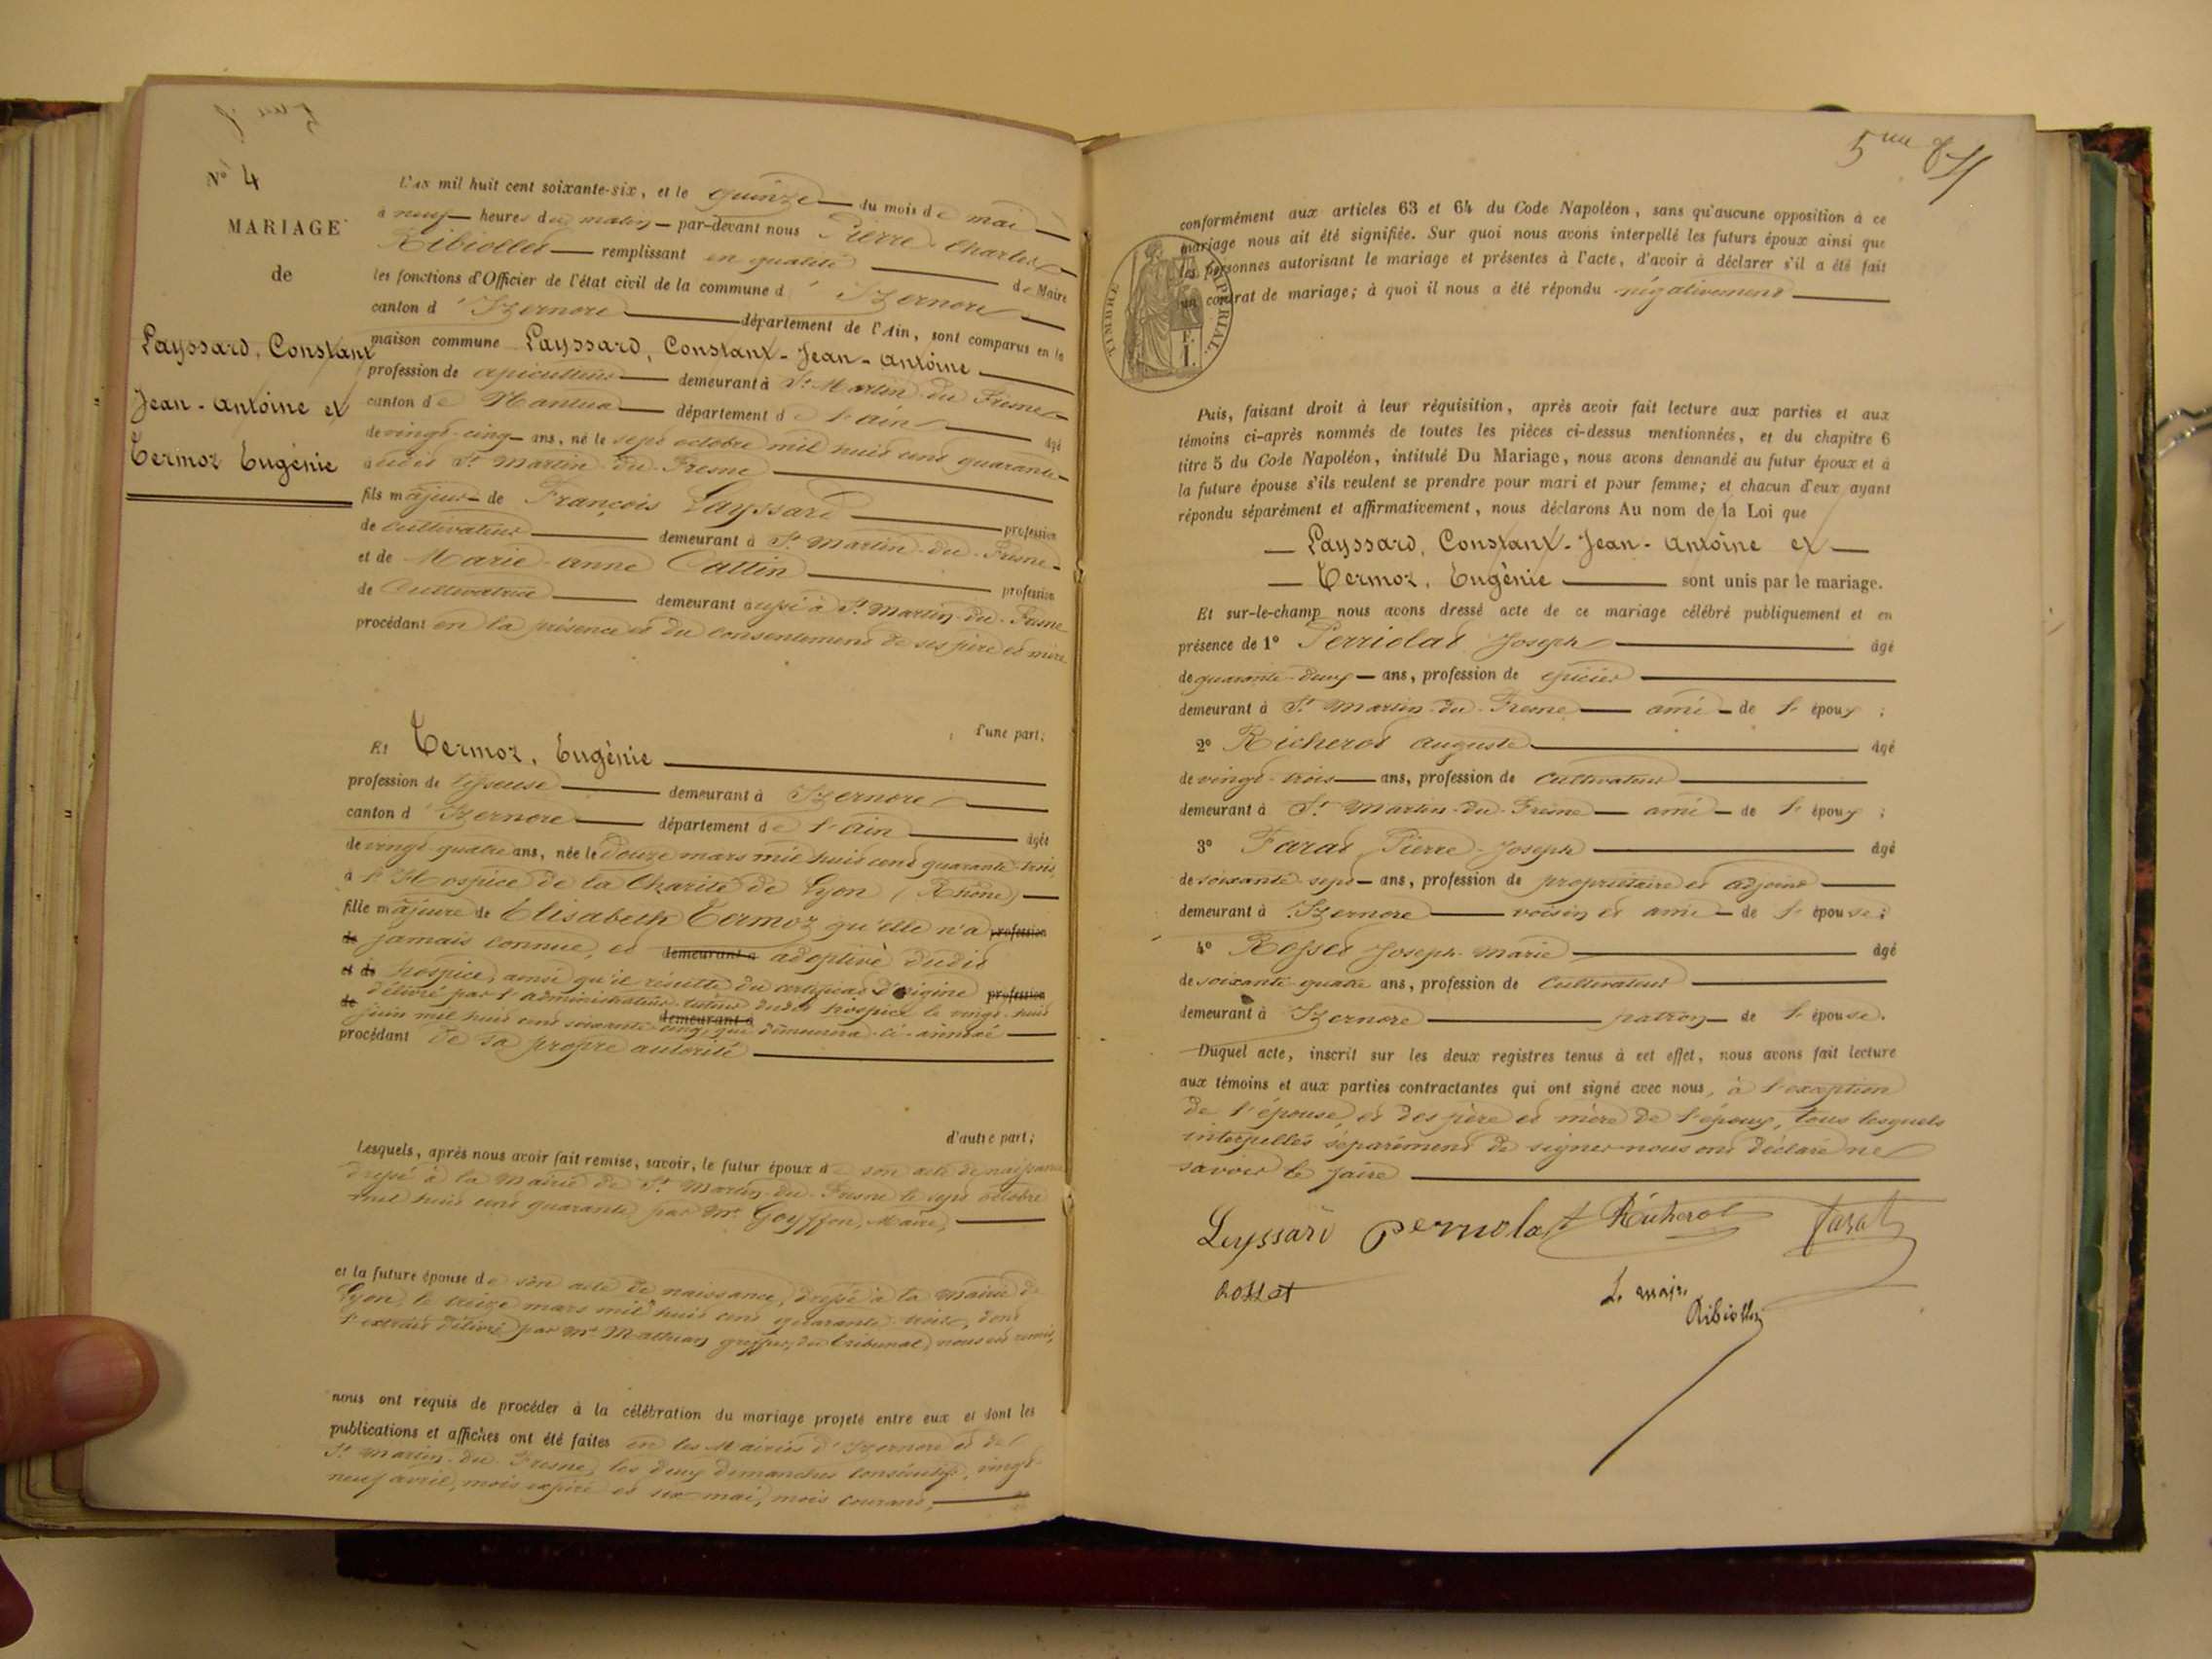 N° 4
MARIAGE
de
Layssard, Constant
Jean-Antoine et
Termoz Eugénie
L'AN mil huit cent soixante-six, et le quinze du mois de mai
à neuf heures du matin par-devant nous Pierre-Charles
Ribiollet remplissant en qualité de Maire
les fonctions d'Officier de l'état civil de la commune d'Izernore
canton d'Izernore département de l'Ain, sont comparus en la
maison commune Layssard, Constant-Jean-Antoine
profession de apiculteur demeurant à St Martin-du-Fresne
canton de Nantua département de l'Ain âgé
de vingt-cinq ans, né le sept octobre mil huit cent quarante
audit St Martin-du-Fresne
fils majeur de François Layssard profession
de cultivateur demeurant à St Martin-du-Fresne
et de Marie-Anne Cattin profession
de Cultivatrice demeurant aussi à St Martin-du-Fresne
procédant en la présence et du consentement de ses père et mère
d'une part;
Et Termoz, Eugénie
profession de tisseuse demeurant à Izernore
canton d'Izernore département de l'Ain âgée
de vingt-quatre ans, née le Douze mars mil huit cent quarante-trois
à l'Hospice de la Charité de Lyon (Rhône)
fille majeure de Elisabeth Termoz qu'elle n'a profession
de jamais connue, et demeurant à adoptive dudit
et de hospice, ainsi qu'il résulte du certificat d'origine profession
de délivré par l'administrateur-tuteur dudit hospice le vingt-huit
juin mil huit cent soixante-cinq, qui demeurant à demeurera ci-annexé
procédant de sa propre autorité
d'autre part;
Lesquels, après nous avoir fait remise, savoir, le futur époux de son acte de naissance
dressé à la Mairie de St Martin-du-Fresne le sept octobre
mil huit cent quarante par Mr Goyffon, Maire,
et la future épouse de son acte de naissance, dressé à la Mairie de
Lyon, le treize mars mil huit cent quarante-trois, dont
l'extrait délivré par Mr Mathian greffier du tribunal, nous est remis,
nous ont requis de procéder à la célébration du mariage projeté entre eux et dont les
publications et affiches ont été faites en les Mairies d'Izernore et de
St Martin-du-Fresne, les deux dimanches consécutifs, vingt-
neuf avril, mois expiré et six mai, mois courant,
5me
conformément aux articles 63 et 64 du Code Napoléon, sans qu'aucune opposition à ce
mariage nous ait été signifiée. Sur quoi nous avons interpellé les futurs époux ainsi que
les personnes autorisant le mariage et présentes à l'acte, d'avoir à déclarer s'il a été fait
un contrat de mariage; à quoi il nous a été répondu négativement
TIMBRE IMPÉRIAL
Puis, faisant droit à leur réquisition, après avoir fait lecture aux parties et aux
témoins ci-après nommés de toutes les pièces ci-dessus mentionnées, et du chapitre 6
titre 5 du Code Napoléon, intitulé Du Mariage, nous avons demandé au futur époux et à
la future épouse s'ils veulent se prendre pour mari et pour femme; et chacun d'eux ayant
répondu séparément et affirmativement, nous déclarons Au nom de la Loi que
Layssard, Constant-Jean-Antoine et
Termoz, Eugénie sont unis par le mariage.
Et sur-le-champ nous avons dressé acte de ce mariage célébré publiquement et en
présence de 1° Perriolat Joseph âgé
de quarante-deux ans, profession de épicier
demeurant à St Martin-du-Fresne ami de l'époux;
2° Richerot Auguste âgé
de vingt-trois ans, profession de Cultivateur
demeurant à St Martin-du-Fresne ami de l'époux;
3° Farat Pierre-Joseph âgé
de soixante-sept ans, profession de propriétaire et adjoint
demeurant à Izernore voisin et ami de l'épouse;
4° Rosset Joseph-Marie âgé
de soixante-quatre ans, profession de Cultivateur
demeurant à Izernore patron de l'épouse.
Duquel acte, inscrit sur les deux registres tenus à cet effet, nous avons fait lecture
aux témoins et aux parties contractantes qui ont signé avec nous, à l'exception
de l'épouse, et des père et mère de l'époux, tous lesquels
interpellés séparément de signer nous ont déclaré ne
savoir le faire
Leyssard Perriolat Richerot Farat
Rosset
Le maire
Ribiollet